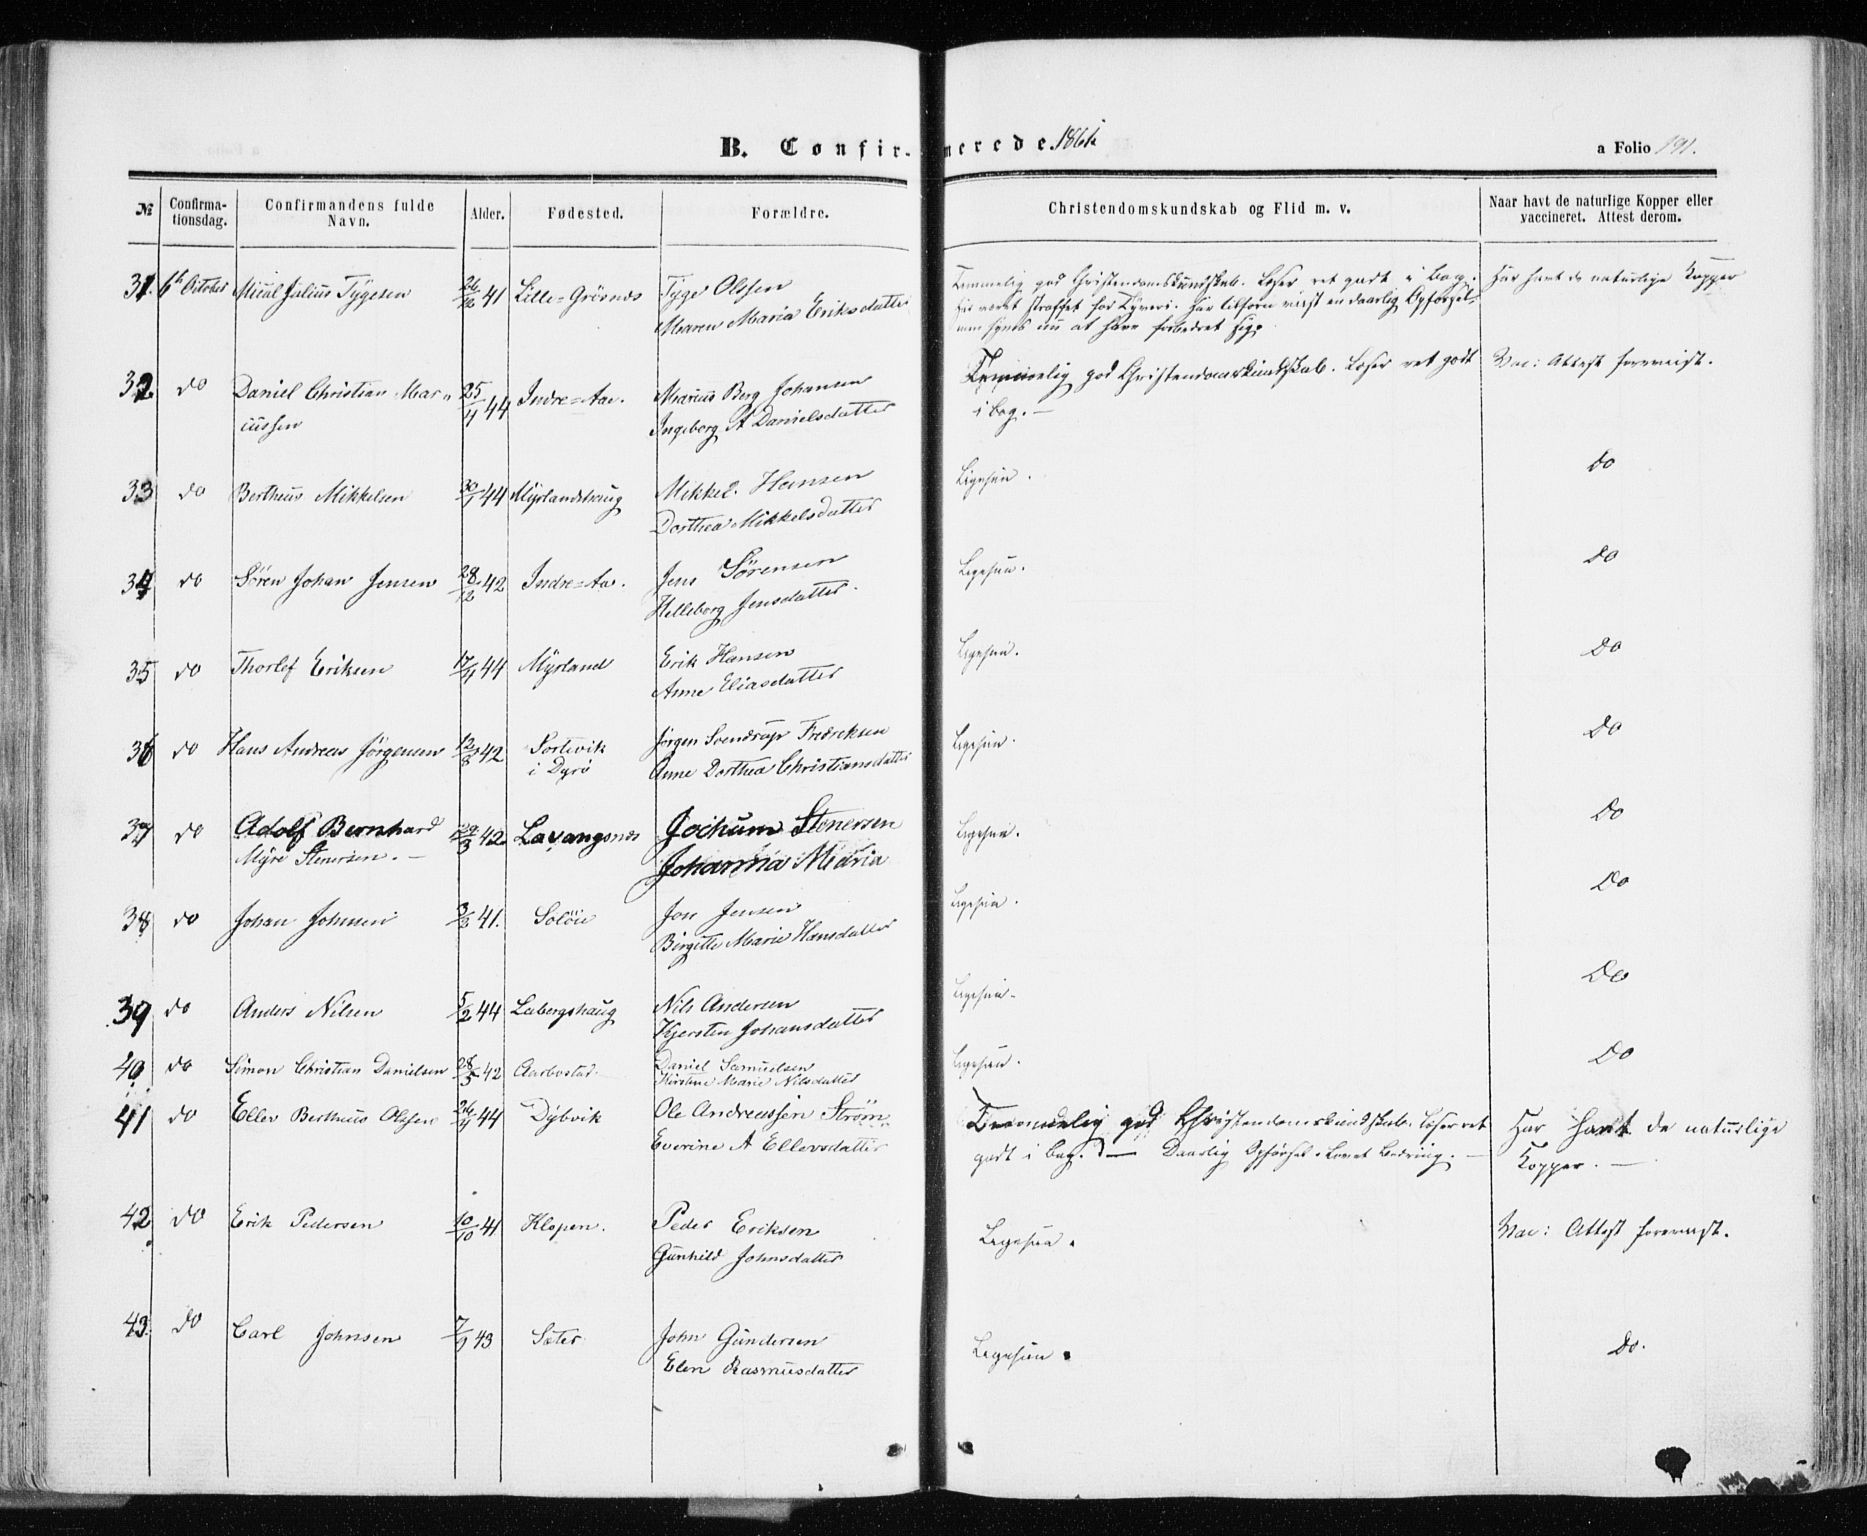 B. Confir-merede.
a Folio 191.
№ Confirma-tionsdag. Confirmandens fulde Navn. Alder. Fødested. Forældre. Christendomskundskab og Flid m. v. Naar havt de naturlige Kopper eller vaccineret. Attest derom.
31. 6te October Mical Julius Tygesen 41 Lille-Grösnes Tyge Olssen Temmelig god Christendomskundskab. Læser ret godt i Bog. Har havt de naturlige Kopper
Maren Maria Eriksdatter Har været straffet for Tyveri. Har tilforn viist en daarlig Opførsel,
men synes nu at have forbedret sig.
32 do Daniel Christian Mar- 25/4 44 Indre-Aae. Marius Berg Johansen Temmelig god Christendomskundskab. Læser ret godt Vac: Attest foreviist.
iussen Ingeborg A Danielsdatter i Bog. —
33 do Bertheus Mikkelsen 30/1 44 Myrlandshaug Mikkel Hansen Ligesaa. Do
Dorthea Mikkelsdatter
34 do Sören Johan Jensen 28/12 42 Indre-Aae. Jens Sörensen Ligesaa. Do
Helleborg Jensdatter.
35 do Thorlef Eriksen 17/4 44 Myrland Erik Hansen Ligesaa. Do
Anne Eliasdatter
36 do Hans Andreas Jörgensen 12/8 42 Portevik Jörgen Svendrup Fredriksen Ligesaa. Do
i Dyrö Anne Dorthea Christiansdatter
37 do Adolf Bernhard 29/3 42 Lavangsnes Jochum Stenersen Ligesaa. Do
Myre Stenersen. — Johanna Maria
38 do Johan Johnsen 3/2 41. Solöie Jon Jensen Ligesaa. Do
Birgitte Marie Hansdatter
39 do Anders Nilsen 5/2 44 Labergshaug Nils Andersen Ligesaa. Do
Kjersten Johansdatter
40 do Simon Christian Danielsen 28/5 42 Aarbostad. Daniel Samuelsen Ligesaa. Do
Kirstine Marie Nilsdatter
41 do Ellev Bertheus Olssen 26/4 44 Dybvik Ole Andreassen Ström Temmelig god Christendomskundskab. Læser ret Har havt de naturlige
Everine A Ellevsdatter godt i Bog. — Daarlig Opførsel. Lovet Bedring. — Kopper. —
42 do Erik Pedersen 10/10 41 Klopen. Peder Eriksen Ligesaa. Vac: Attest foreviist.
Gunhild Johnsdatter
43. do Carl Johnsen 7/9 43 Sæter John Gundersen Ligesaa. Do.
Elen Rasmusdatter